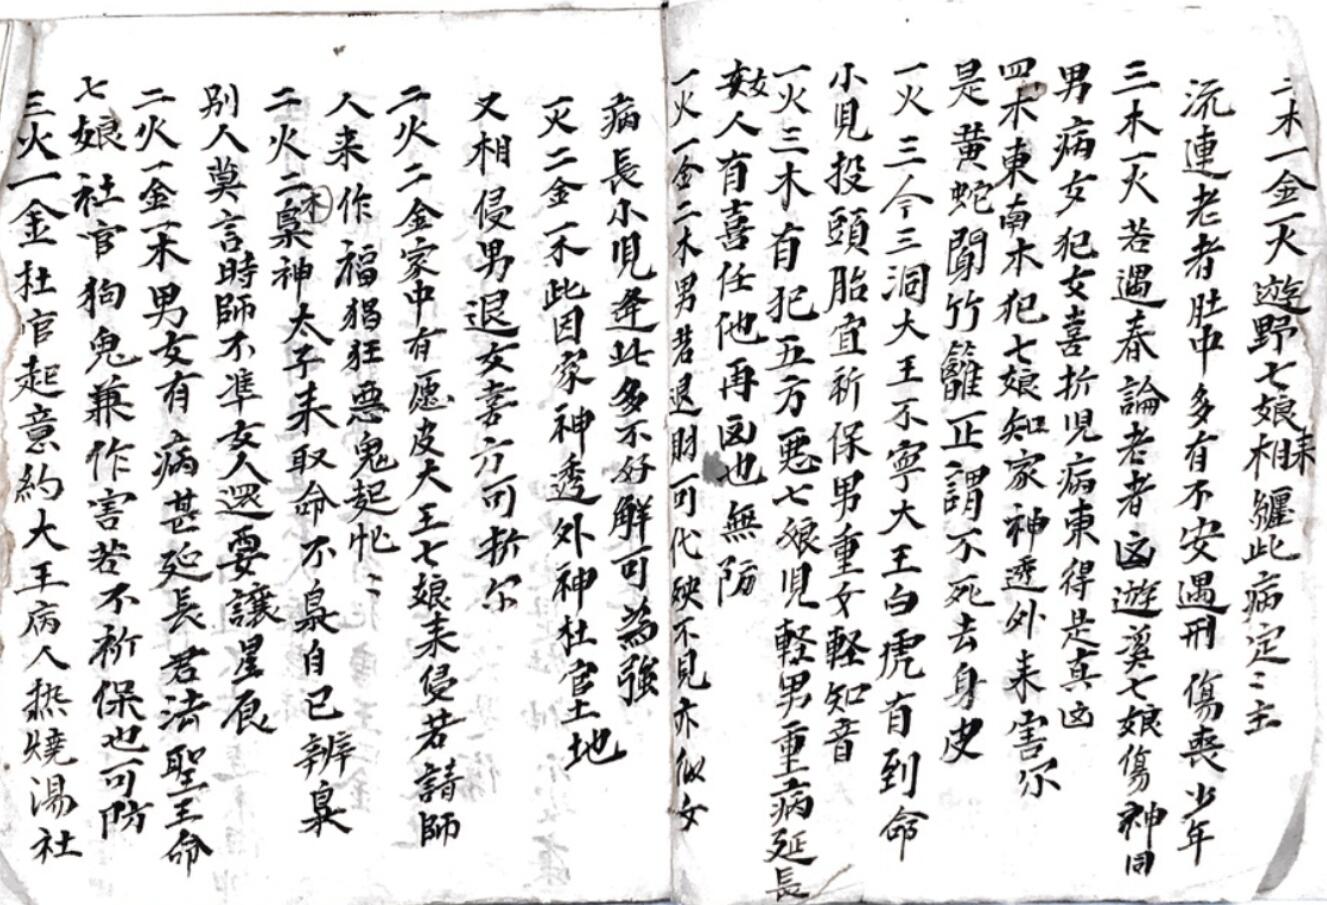 二木一金一火遊野七娘相耒纏此病定〻主
流連老者肚中多有不安遇刑傷喪少年
三木一火若遇春論老者凶遊奚七娘傷神同
男病女犯女喜折児病東得是真凶
四木東南木犯七娘知家神透外耒害尔
是黄蛇聞竹籬正謂不死去身皮
一火三今三洞大王不寧大王白虎有到命
小児投頭胎宜祈保男重女軽知音
一火三木有犯五方悪七娘児軽男重病延長
人有喜任他再凶也無防
一火一金二木男若退財可代殃不見亦似女
病長小児逢此多不好解可為強
一火二金一木此因家神透外神社官土地
又相侵男退女喜方可折尔
二火二金家中有愿皮大王七娘耒侵若請師
人来作福猖狂悪鬼起忙〻
二火二木梟神太子耒取命不梟自已辨梟
别人莫言時師不準女人還要讓星辰
二火一金一木男女有病甚延長君法聖王命
七娘社官狗鬼兼作害若不祈保也可防
三火一金社官起意約大王病人热燒湯社